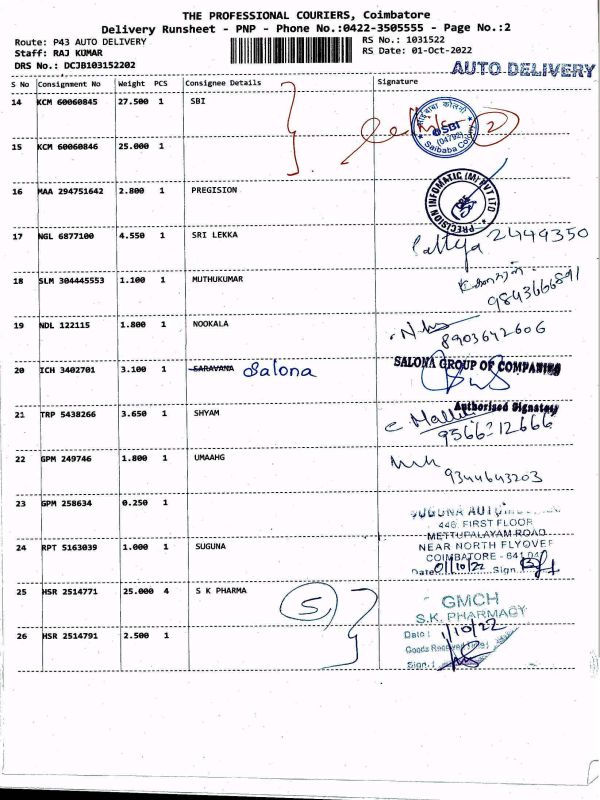 THE PROFESSIONAL COURIERS, Coimbatore
Delivery Runsheet - PNP - Phone No.:0422-3505555 - Page No.:2
Route: P43 AUTO DELIVERY
RS No.: 1031522
Staff: RAJ KUMAR
RS Date: 01-Oct-2022
DRS No.: DCJB103152202
AUTO DELIVERY
S No Consignment No Weight PCS Consignee Details Signature
14 KCM 60060845 27.500 1 SBI
SBI
(04792)
Saibaba Colony
2
15 KCM 60060846 25.000 1
16 MAA 294751642 2.800 1 PREGISION
PRECISION INFOMATIC (M) PVT LTD
17 NGL 6877100 4.550 1 SRI LEKKA
Sattya 2449350
18 SLM 304445553 1.100 1 MUTHUKUMAR
9843666891
19 NDL 122115 1.800 1 NOOKALA
8903642606
20 ICH 3402701 3.100 1 SARAVANA Salona
SALONA GROUP OF COMPANIES
Authorised Signatory
21 TRP 5438266 3.650 1 SHYAM
22 GPM 249746 1.800 1 UMAAHG
9344643203
23 GPM 258634 0.250 1
SUGUNA
446, FIRST FLOOR
METTUPALAYAM ROAD
NEAR NORTH FLYOVER
24 RPT 5163039 1.000 1 SUGUNA
COIMBATORE - 641
Date 01/10/22 Sign
25 HSR 2514771 25.000 4 S K PHARMA
5
GMCH
S.K. PHARMACY
26 HSR 2514791 2.500 1
Date: 1/10/22
Goods Received
Sign.: